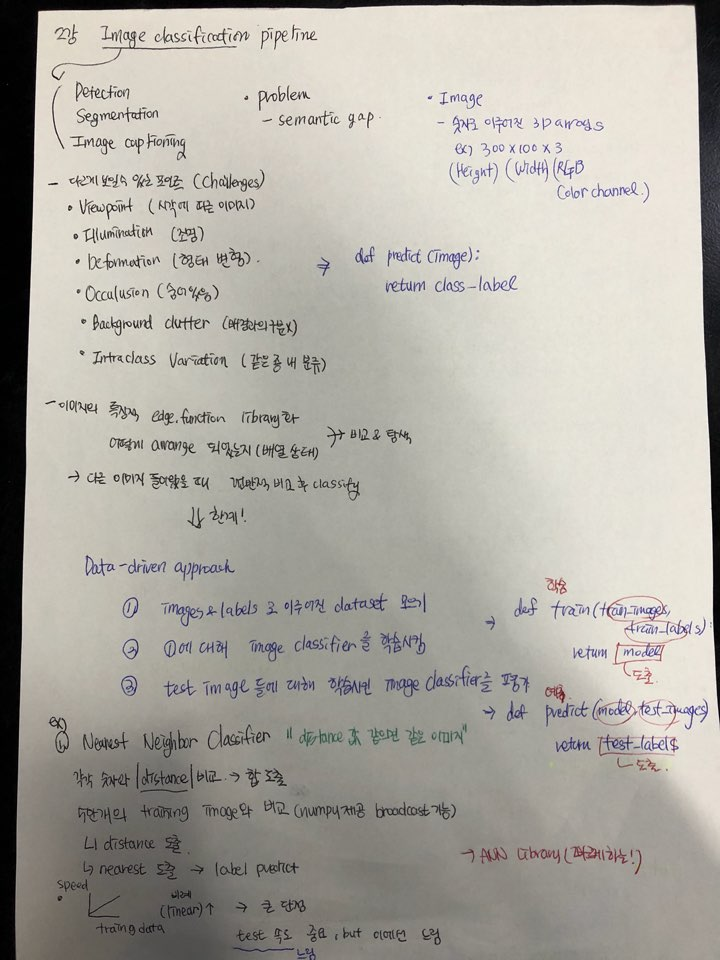 2강 Image classification pipeline
Detection
Segmentation
Image captioning
• problem
- semantic gap.
• Image
- 숫자로 이루어진 3D arrays
ex) 300 x 100 x 3
(Height) (Width) (RGB
Color channel.)
- 다르게 보일 수 있는 포인트 (Challenges)
• Viewpoint (시각에 따른 이미지)
• Illumination (조명)
• Deformation (형태 변형).
• Occulusion (숨어있음)
• Background clutter (배경과의 구분X)
• Intraclass Variation (같은 종 내 분류)
⇒ def predict (image):
return class-label
- 이미지의 특징적 edge.function library화
어떻게 arrange 되있는지 (배열 상태)
→ 비교 & 탐색
→ 다른 이미지 들어왔을 때 전반적 비교 후 classify
⇓ 한계!
Data-driven approach
① images & labels 로 이루어진 dataset 모으기
② ①에 대해 image classifier를 학습시킴
③ test image 들에 대해 학습시킨 image classifier를 평가
학습
→ def train (train_images,
train_labels):
return model
도출.
예측
→ def predict (model, test_images)
return test_labels
도출.
ex)
1. Nearest Neighbor Classifier "distance 값 같으면 같은 이미지"
각각 숫자의 |distance| 비교 → 합 도출
5만개의 training image와 비교 (numpy제공 broadcast 기능)
L1 distance 도출.
↳ nearest 도출 → label predict
→ ANN Library (빠르게 하는!)
speed
traing data
비례
(linear) ↑ → 큰 단점
test 속도 중요, but 이에선 느림
느림